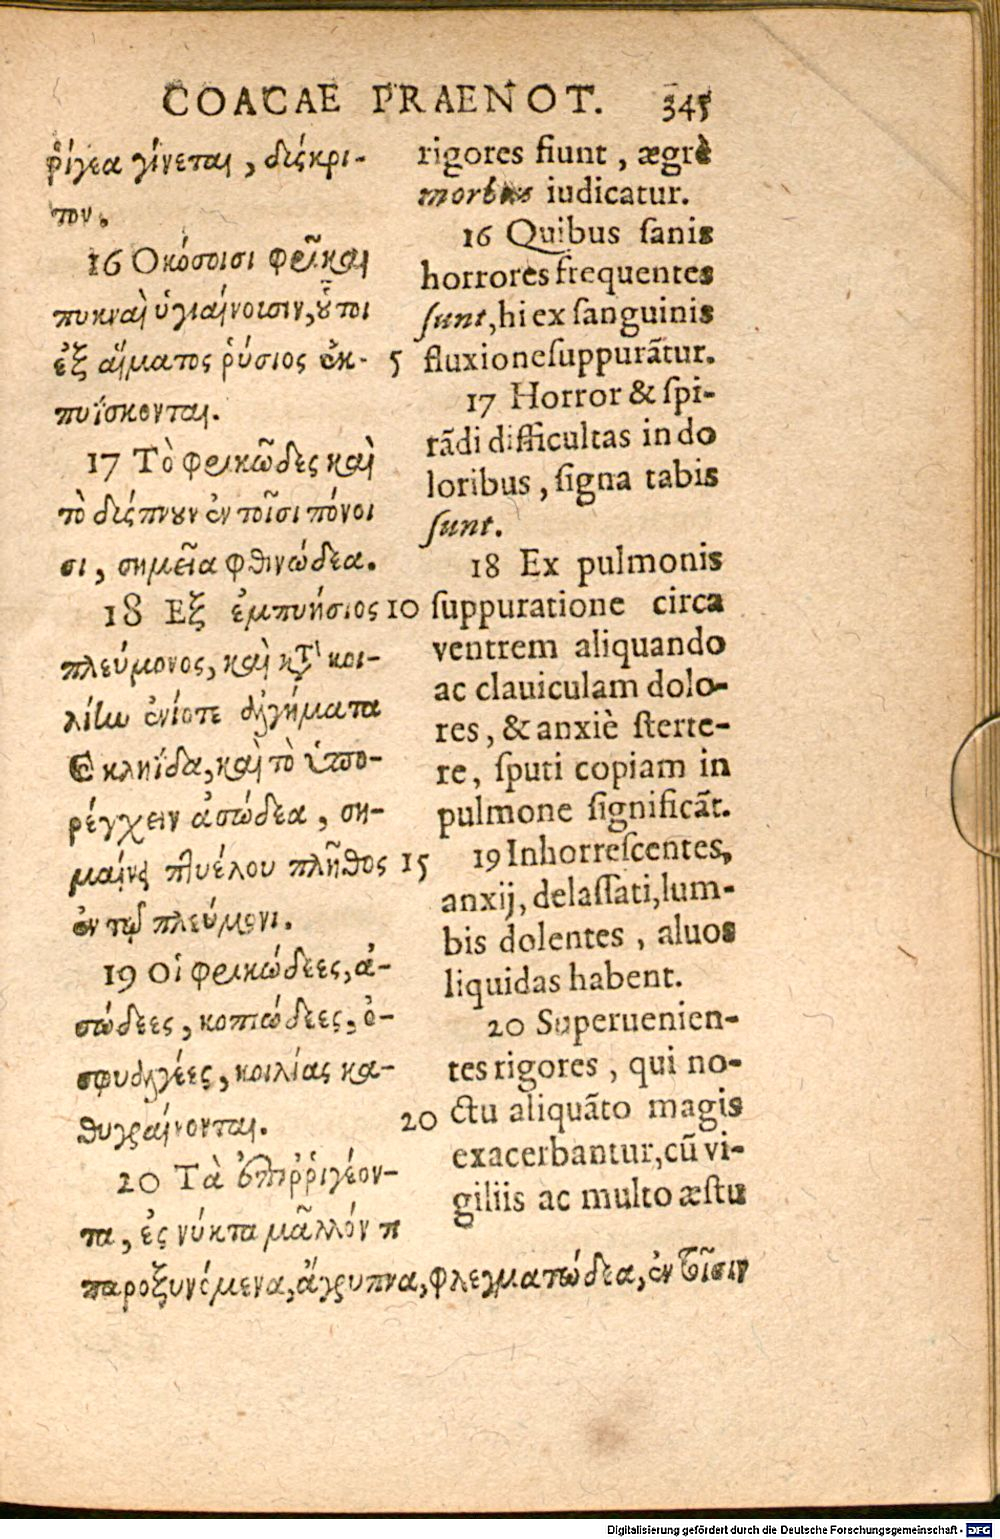 COACAE PRAENOT. 345
ῥίγεα γίνεται, δύσκρι-
τον.
16 Οκόσοισι φρῖκαι
πυκναὶ ὑγιαίνουσιν, οὗτοι
ἐξ αἵματος ῥύσιος ἐκ-
πυΐσκονται.
17 Τὸ φρικῶδες καὶ
τὸ δύσπνουν ἐν τοῖσι πόνοι
σι, σημεῖα φθινώδεα.
18 Εξ ἐμπυήσιος
πλεύμονος, καὶ κτ' κοι-
λίην ἐνίοτε ἀλγήματα
καὶ κληΐδα, καὶ τὸ ὑπο-
ρέγχειν ἀσώδεα, ση-
μαίνει πτυέλου πλῆθος
ἐν τῷ πλεύμονι.
19 Οἱ φρικώδεες, ἀ-
σώδεες, κοπιώδεες, ὀ-
σφυαλγέες, κοιλίας κα-
θυγραίνονται.
20 Τὰ ἐπιῤῥιγέον-
τα, ἐς νύκτα μᾶλλόν τι
παροξυνόμενα, ἄγρυπνα, φλεγματώδεα, ἐν τοῖσιν
rigores fiunt, ægrè
morbus iudicatur.
16 Quibus sanis
horrores frequentes
sunt, hi ex sanguinis
5 fluxione suppurãtur.
17 Horror & spi-
rãdi difficultas in do
loribus, signa tabis
sunt.
18 Ex pulmonis
10 suppuratione circa
ventrem aliquando
ac clauiculam dolo-
res, & anxiè sterte-
re, sputi copiam in
pulmone significãt.
15 19 Inhorrescentes,
anxij, delassati, lum-
bis dolentes, aluos
liquidas habent.
20 Superuenien-
tes rigores, qui no-
20 ctu aliquãto magis
exacerbantur, cũ vi-
giliis ac multo æstu
Digitalisierung gefördert durch die Deutsche Forschungsgemeinschaft - DFG